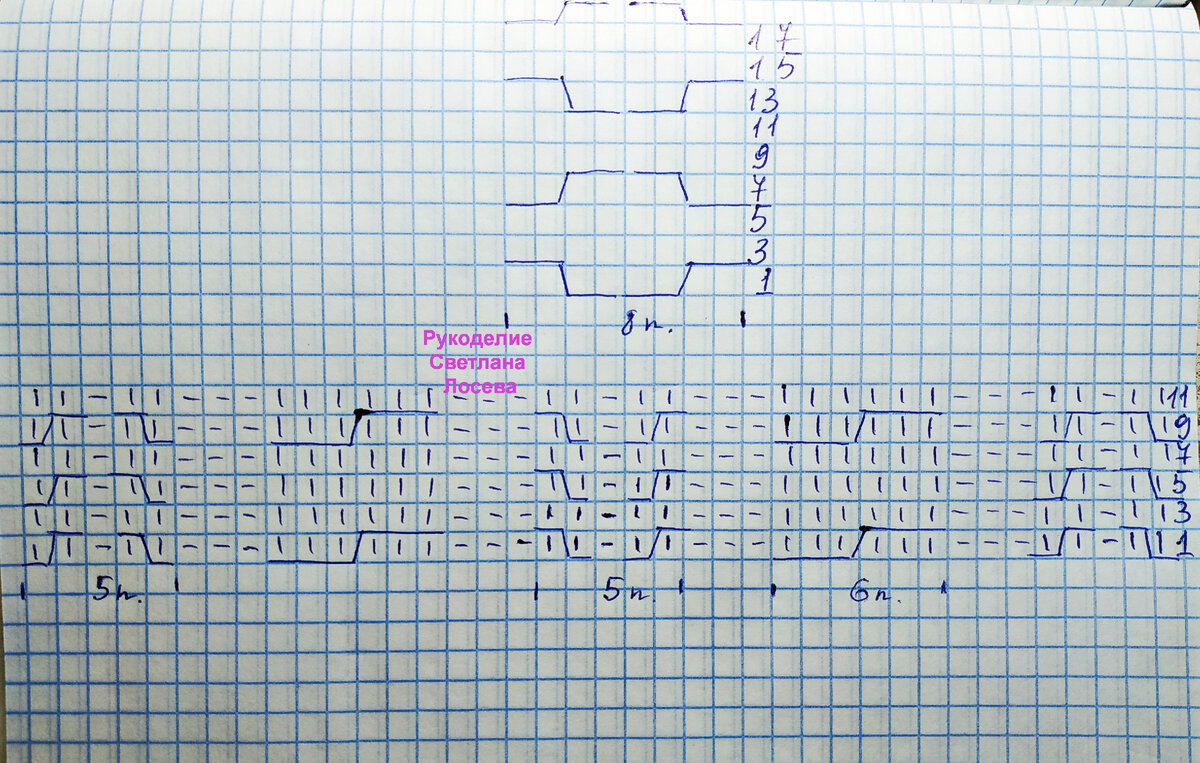 17
15
13
11
9
7
5
3
1
8 п.
Рукоделие
Светлана
Лосева
11
9
7
5
3
1
5 п. 5 п. 6 п.